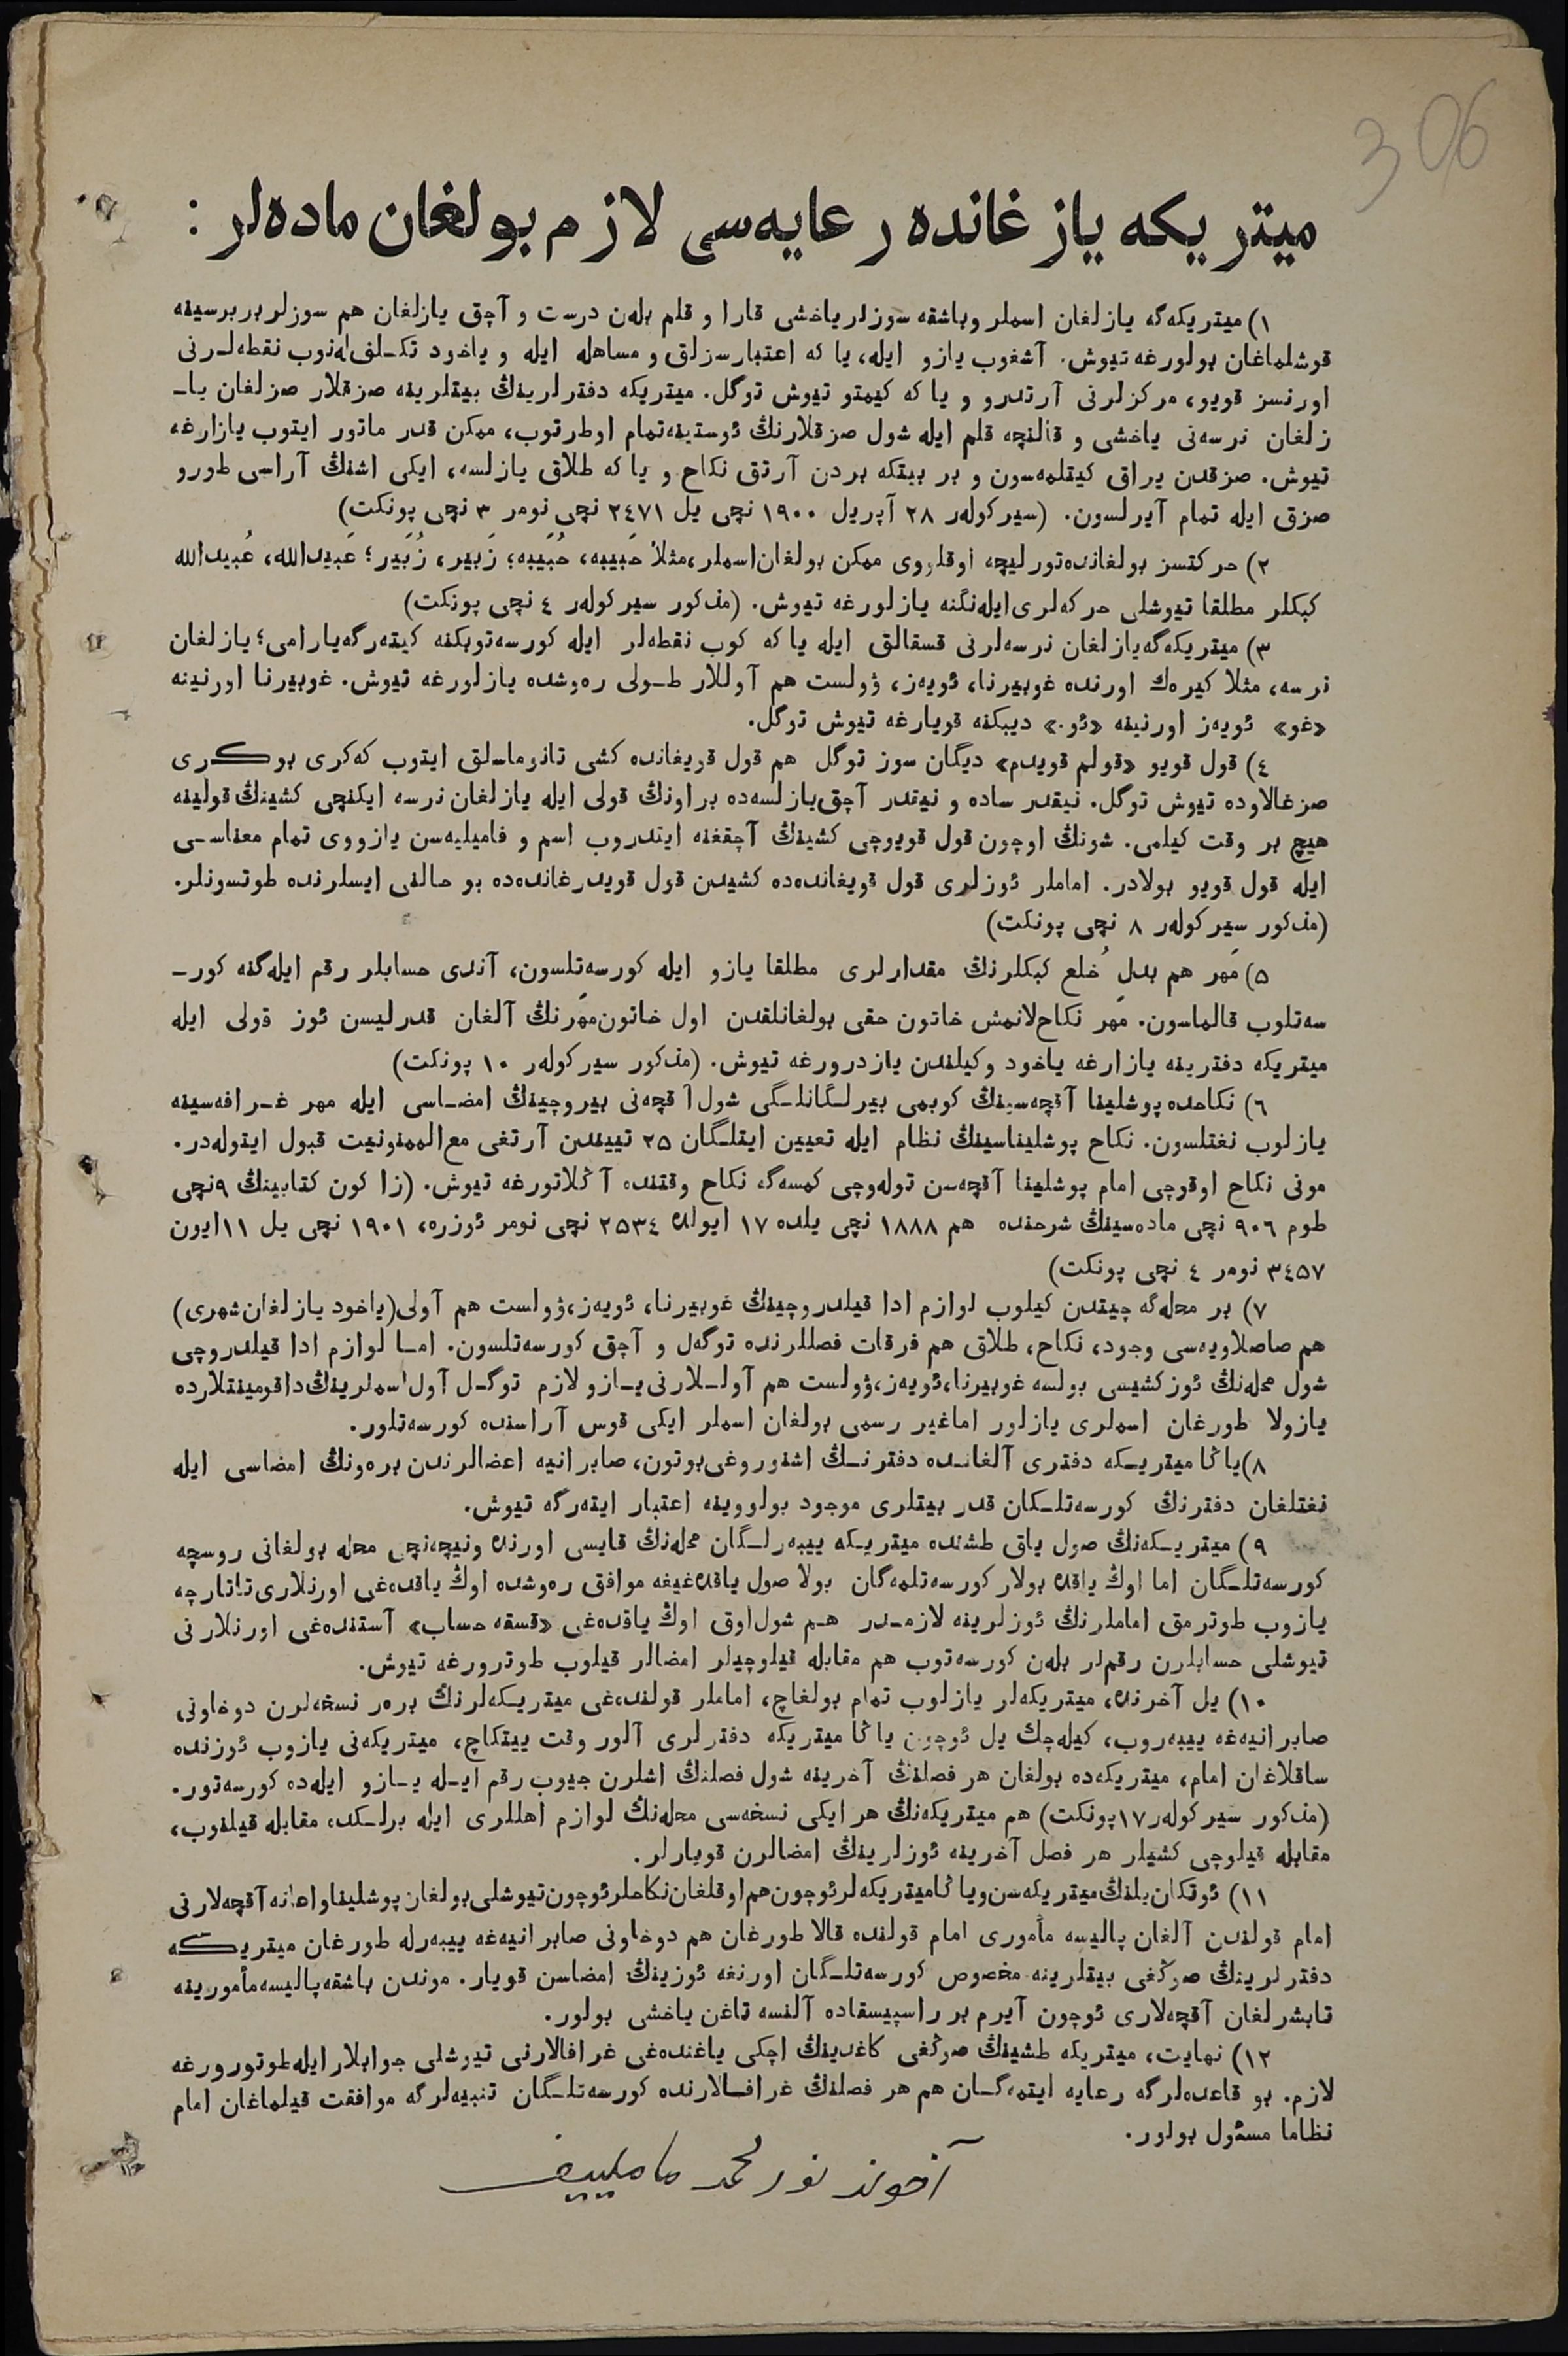 306
میتریکه یازغانده رعایه‌سی لازم بولغان ماده‌لر :
١) میتریکه‌گه یازلغان اسملر وباشقه سوزلر یاخشی قارا و قلم بله‌ن درست و آچق یازلغان هم سوزلر بربرسینه
قوشلماغان بولورغه تیوش. آشغوب یازو ایله، یا که اعتبارسزلق و مساهله ایله و یاخود تکـلف‌له‌نوب نقطه‌لـرنی
اورنسز قویو، مرکزلرنی آرتدرو و یا که کیمتو تیوش توگل. میتریکه دفترلرینڭ بیتلرینه صزقلار صزلغان یاـ
زلغان نرسه‌نی یاخشی و قالنچه قلم ایله شول صزقلارنڭ ئوستینه‌تمام اوطرتوب، ممکن قدر ماتور ایتوب یازارغه
تیوش. صزقدن یراق کیتلمه‌سون و بر بیتکه بردن آرتق نکاح و یا که طلاق یازلسه، ایکی اشنڭ آراسی طورو
صزق ایله تمام آیرلسون. (سیرکوله‌ر ٢٨ آپریل ١٩٠٠ نچی یل ٢٤٧١ نچی نومر ٣ نچی پونکت)
٢) حرکتسز بولغانده‌تورلیچه اوقلووی ممکن بولغان‌اسملر،مثلا حَبیبه، حُبَیبه؛ زَبیر، زُبَیر؛ عَبیدالله، عُبیدالله
کبکلر مطلقا تیوشلی حرکه‌لری‌ایله‌نگنه یازلورغه تیوش. (مذکور سیرکوله‌ر ٤ نچی پونکت)
٣) میتریکه‌گه‌یازلغان نرسه‌لرنی قسقالق ایله یا که کوب نقطه‌لر ایله کورسه‌توبکنه کیته‌رگه‌یارامی؛ یازلغان
نرسه، مثلا کیره‌ك اورنده غوبیرنا، ئویه‌ز، ۋولست هم آوللار طـولی ره‌وشده یازلورغه تیوش. غوبیرنا اورنینه
«غو» ئویه‌ز اورنینه «ئو.» دیبکنه قویارغه تیوش توگل.
٤) قول قویو «قولم قویدم» دیگان سوز توگل هم قول قویغانده کشی تانوماسلق ایتوب که‌کری بوکـری
صزغالاوده تیوش توگل. نیقدر ساده و نیقدر آچق‌یازلسه‌ده براونڭ قولی ایله یازلغان نرسه ایکنچی کشینڭ قولینه
هیچ بر وقت کیلمی. شونڭ اوچون قول قویوچی کشینڭ آچقغنه ایتدروب اسم و فامیلیه‌سن یازووی تمام معناسـی
ایله قول قویو بولادر. اماملر ئوزلری قول قویغانده‌ده کشیدن قول قویدرغانده‌ده بو حالنی ایسلرنده طوتسونلر.
(مذکور سیرکوله‌ر ٨ نچی پونکت)
٥) مَهر هم بدلِ خُلع کبکلرنڭ مقدارلری مطلقا یازو ایله کورسه‌تلسون، آندی حسابلر رقم ایله‌گنه کورـ
سه‌تلوب قالماسون. مَهر نکاح‌لانمش خاتون حقی بولغانلقدن اول خاتون‌مهرنڭ آلغان قدرلیسن ئوز قولی ایله
میتریکه دفترینه یازارغه یاخود وکیلندن یازدرورغه تیوش. (مذکور سیرکوله‌ر ١٠ پونکت)
٦) نکاحده پوشلینا آقچه‌سینڭ کوبمی بیرلـگانلـگی شول آقچه‌نی بیروچینڭ امضـاسی ایله مهر غـرافه‌سینه
یازلوب نغتلسون. نکاح پوشلیناسینڭ نظام ایله تعیین ایتلـگان ٢٥ تییندن آرتغی مع‌الممنونیت قبول ایتوله‌در.
مونی نکاح اوقوچی امام پوشلینا آقچه‌سن توله‌وچی کمسه‌گه نکاح وقتنده آڭلاتورغه تیوش. (زاکون کتابینڭ ٩نچی
طوم ٩٠٦ نچی ماده‌سینڭ شرحنده هم ١٨٨٨ نچی یلده ١٧ ایولده ٢٥٣٤ نچی نومر ئوزره، ١٩٠١ نچی یل ١١ایون
٣٤٥٧ نومر ٤ نچی پونکت)
٧) بر محله‌گه چیتدن کیلوب لوازم ادا قیلدروچینڭ غوبیرنا، ئویه‌ز،ۋولست هم آولی(یاخود یازلغان‌شهری)
هم صاصلاویه‌سی وجود، نکاح، طلاق هم فرقات فصللرنده توگه‌ل و آچق کورسه‌تلسون. امـا لوازم ادا قیلدروچی
شول محله‌نڭ ئوزکشیسی بولسه غوبیرنا،ئویه‌ز،ۋولست هم آولـلارنی یـازو لازم توگـل آول‌اسملرینڭ‌داقومینتلارده
یازولا طورغان اسملری یازلور اماغیر رسمی بولغان اسملر ایکی قوس آراسنده کورسه‌تلور.
٨)یاڭا میتریـکه دفتری آلغانـده دفترنـڭ اشنوروغی‌بوتون، صابرانیه اعضالرندن بره‌ونڭ امضاسی ایله
نغتلغان دفترنڭ کورسه‌تلـکان قدر بیتلری موجود بولووینه اعتبار ایته‌رگه تیوش.
٩) میتریـکه‌نڭ صول یاق طشنده میتریـکه ییبه‌رلـگان محله‌نڭ قایسی اورنده ونیچه‌نچی محله بولغانی روسچه
کورسه‌تلـگان اما اوڭ یاقده بولار کورسه‌تلمه‌گان بولا صول یاقده‌غیغه موافق ره‌وشده اوڭ یاقده‌غی اورنلاری‌تاتارچه
یازوب طوترمق اماملرنڭ ئوزلرینه لازمـدر هـم شول‌اوق اوڭ یاقده‌غی «قسقه حساب» آستنده‌غی اورنلارنی
تیوشلی حسابلرن رقملر بله‌ن کورسه‌توب هم مقابله قیلوچیلر امضالر قیلوب طوترورغه تیوش.
١٠) یل آخرنده، میتریکه‌لر یازلوب تمام بولغاچ، اماملر قولنده‌غی میتریـکه‌لرنڭ بره‌ر نسخه‌لرن دوخاونی
صابرانیه‌غه ییبه‌روب، کیله‌چك یل ئوچون یاڭا میتریکه دفترلری آلور وقت ییتکاچ، میتریکه‌نی یازوب ئوزنده
ساقلاغان امام، میتریکه‌ده بولغان هر فصلنڭ آخرینه شول فصلنڭ اشلرن جیوب رقم ایـله یـازو ایله‌ده کورسه‌تور.
(مذکور سیرکوله‌ر ١٧پونکت) هم میتریکه‌نڭ هر ایکی نسخه‌سی محله‌نڭ لوازم اهللری ایله برلـکده مقابله قیلنوب،
مقابله قیلوچی کشیلر هر فصل آخرینه ئوزلرینڭ امضالرن قویارلر.
١١) ئوتکان‌یلنڭ‌میتریکه‌سن‌ویاڭامیتریکه‌لرئوچون‌هم‌اوقلغان‌نکاحلرئوچون‌تیوشلی‌بولغان‌پوشلیناواعانه‌آقچه‌لارنی
امام قولندن آلغان پالیسه مأموری امام قولنده قالا طورغان هم دوخاونی صابرانیه‌غه ییبه‌رله طورغان میتریـکه
دفترلرینڭ صوڭغی بیتلرینه مخصوص کورسه‌تلـگان اورنغه ئوزینڭ امضاسن قویار. موندن باشقه‌پالیسه‌مأمورینه
تابشرلغان آقچه‌لاری ئوچون آیرم بر راسپیسقاده آلنسه تاغن یاخشی بولور.
١٢) نهایت، میتریکه طشینڭ صوڭغی کاغدینڭ اچکی یاغنده‌غی غرافالارنی تیوشلی جوابلار ایله‌طوتورورغه
لازم. بو قاعده‌لرگه رعایه ایتمه‌گـان هم هر فصلنڭ غرافـالارنده کورسه‌تلـگان تنبیه‌لرگه موافقت قیلماغان امام
نظاما مسئول بولور.
آخوند نورمحمد ماملییف